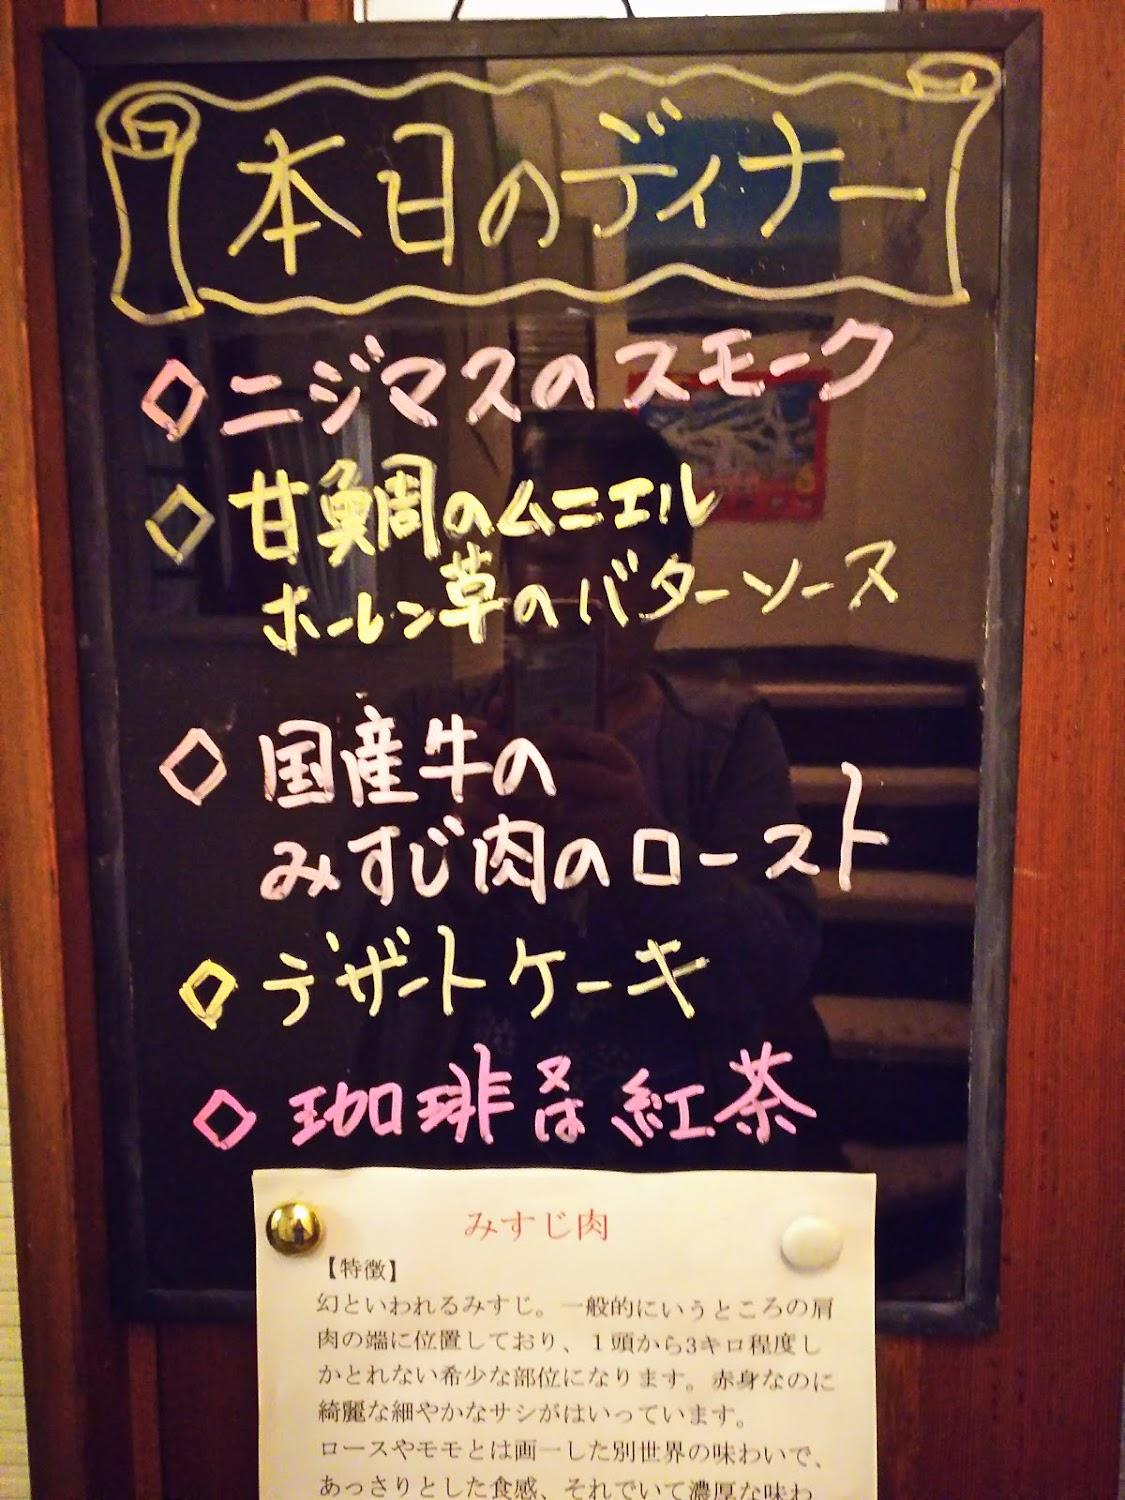 本日のディナー
◇ニジマスのスモーク
◇甘鯛のムニエル
ホーレン草のバターソース
◇国産牛の
みすじ肉のロースト
◇デザートケーキ
◇珈琲又は紅茶
みすじ肉
【特徴】
幻といわれるみすじ。一般的にいうところの肩
肉の端に位置しており、１頭から3キロ程度し
かとれない希少な部位になります。赤身なのに
綺麗な細やかなサシがはいっています。
ロースやモモとは画一した別世界の味わいで、
あっさりとした食感、それでいて濃厚な味わ